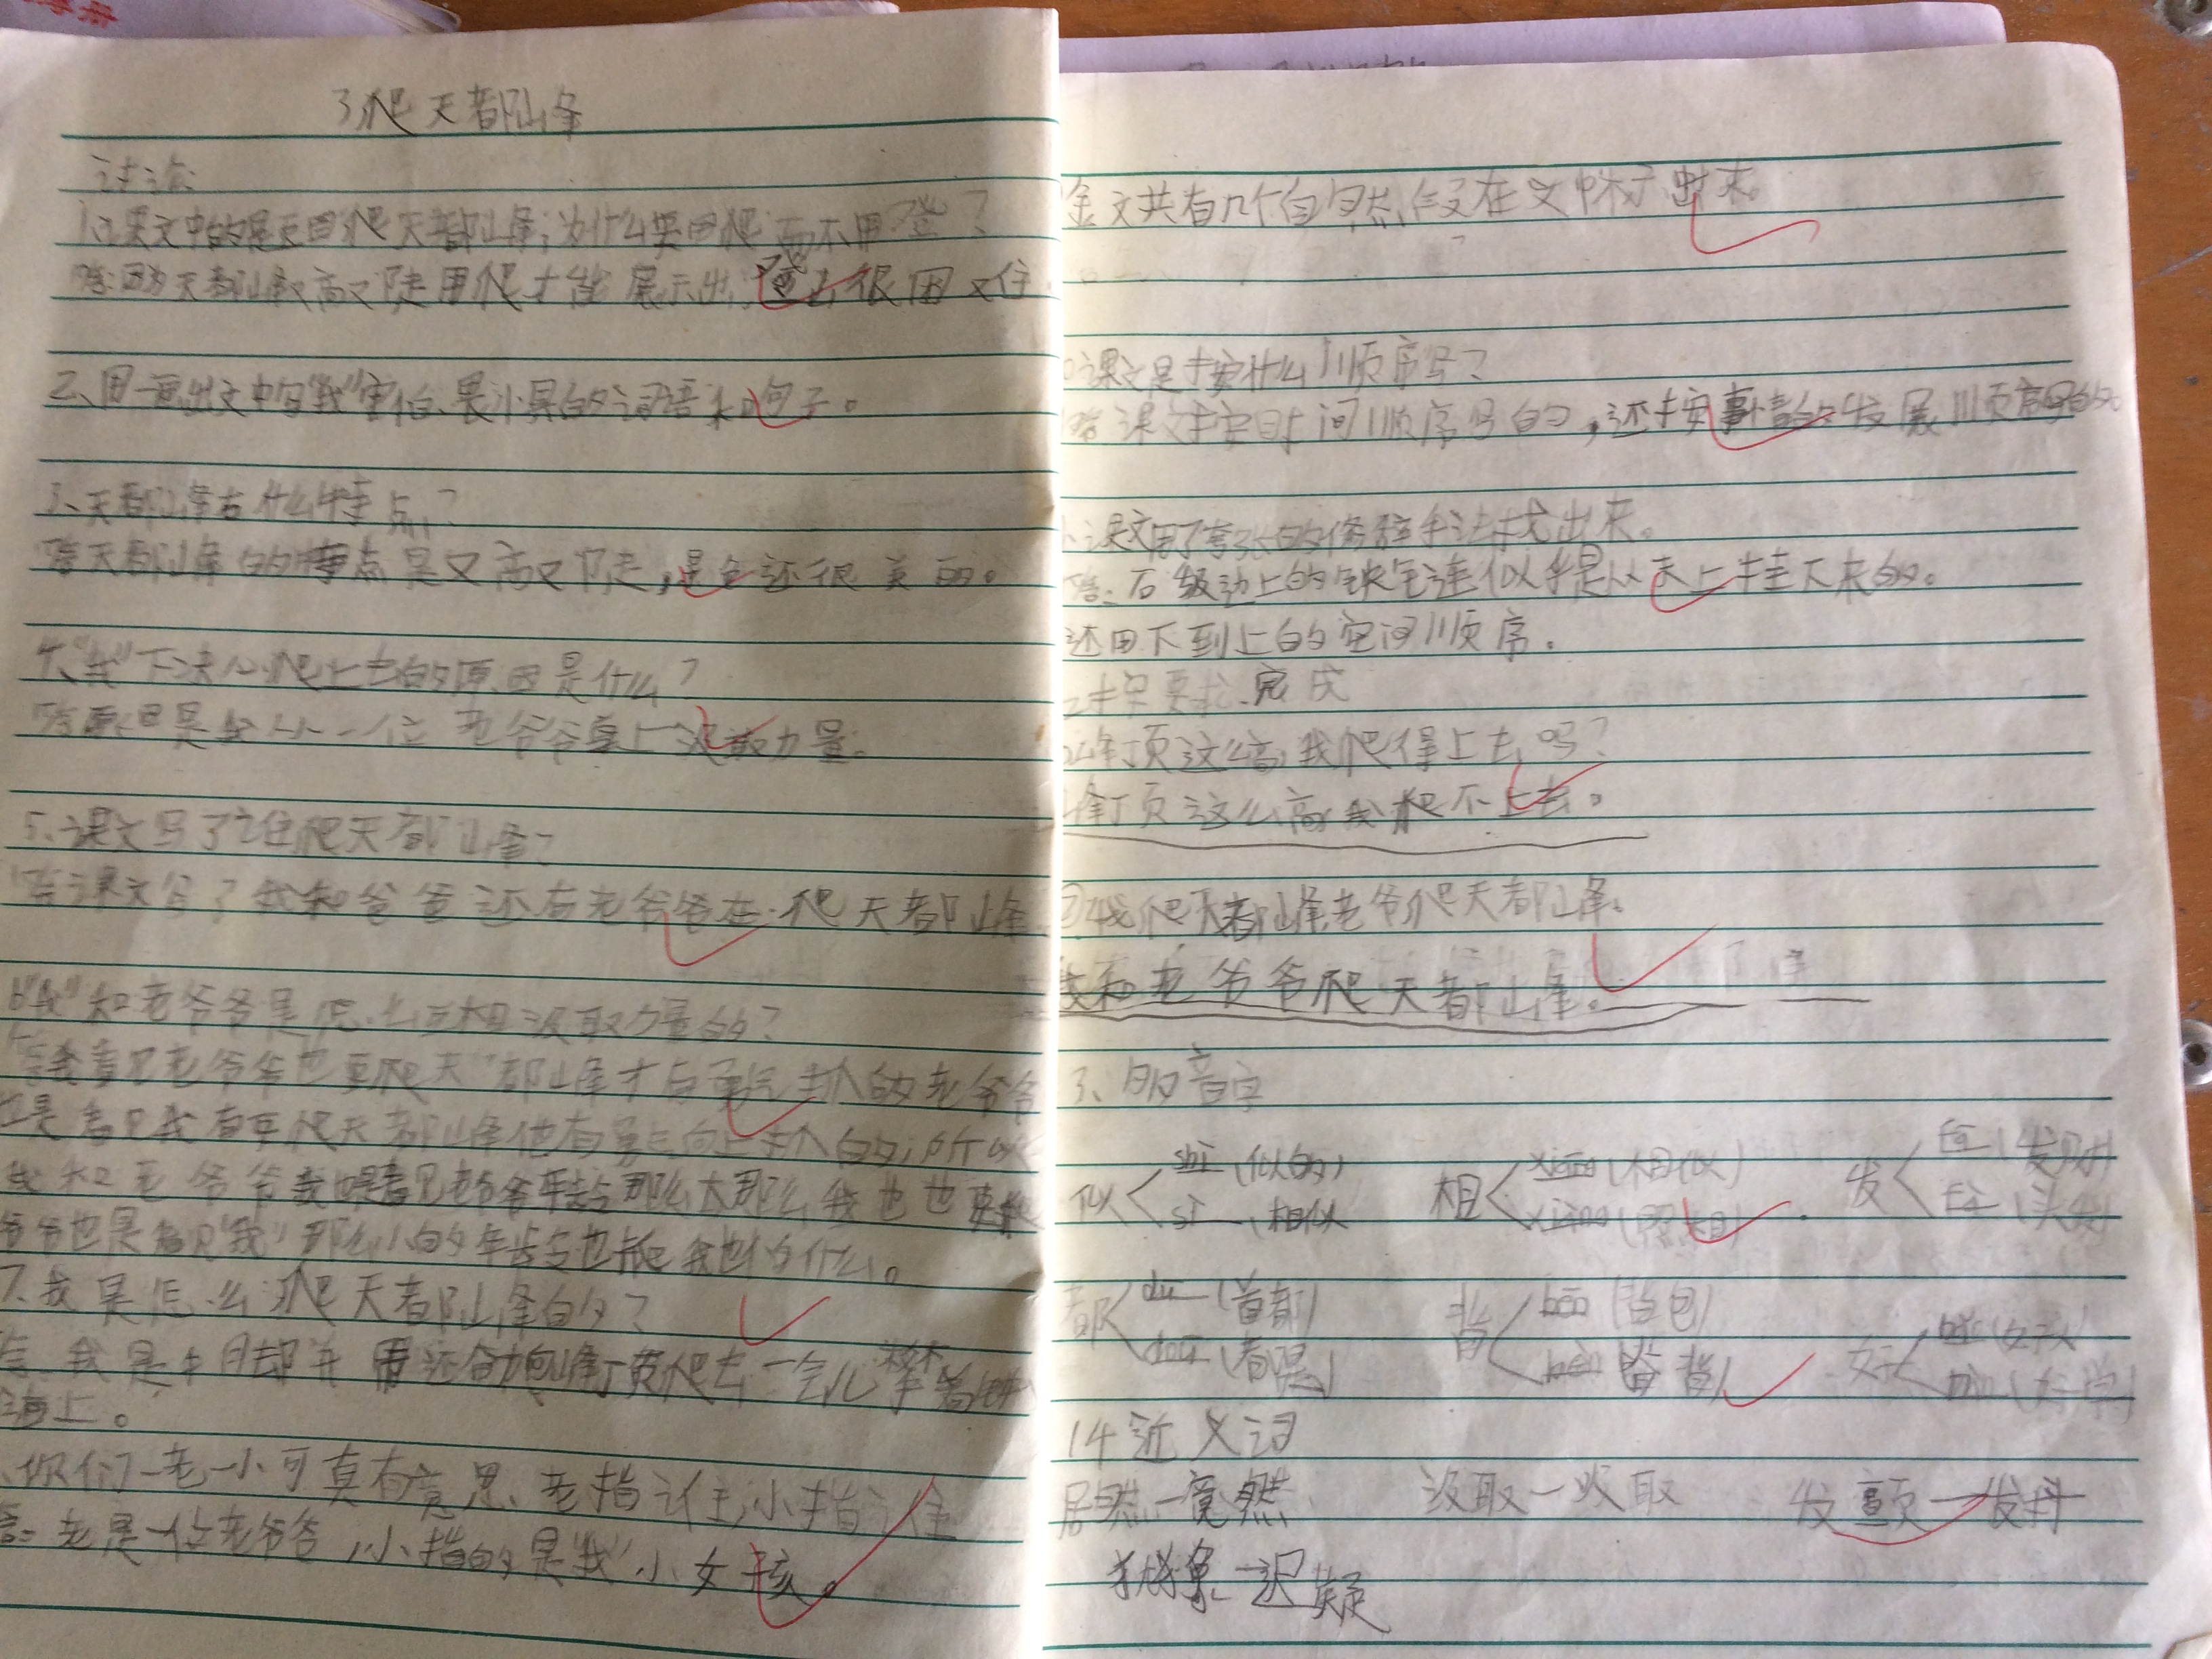 3、爬天都峰
讨论
1、课文中的是要用爬天都峰,为什么要用爬而不用登?
答:因为天都峰又高又陡用爬才能展示出很困
2、用一画出文中写"我"害怕、最小的词语和句子。
3、天都峰有什么特点?
答天都峰的特点是又高又陡,是还很美的。
4、"我"下决心爬上去的原因是什么?
答原因是从一位老爷爷身上汲取力量。
5、课文写了谁爬天都峰?
答课文写了我和爸爸还有老爷爷在爬天都峰
6"我"和老爷爷是怎么互相汲取力量的?
答我看见老爷爷也要爬天都峰才有勇气的老爷爷
也是看见我有要爬天都峰他有勇气向上的,所以
我和老爷爷我也是看见老爷爷年龄那么大那么我也也要
爷爷也是看见"我"那么小的年龄也
7、我是怎么爬天都峰的?
我是手脚并用还奋力向峰顶爬去一会儿攀着
上。
、你们一老一小可真有意思、老指谁,小指谁
答:老是一位老爷爷,小指的是"我"小女孩。
全文共有几个自然段在文中标出来。
课文是按什么顺序写?
答课文按时间顺序写的,还按事情的发展顺序写的。
课文用了夸张的修辞手法找出来。
答:石级边上的铁链似乎是从天上挂下来的。
还用下到上的空间顺序。
2按要求完成
峰顶这么高,我爬得上去吗?
峰顶这么高,我爬不上去。
②我爬天都峰,老爷爬天都峰。
我和老爷爷爬天都峰。
3、多音字
似 shì (似的) 相 xiāng (相似) 发 fā (发财)
sì (相似 xiàng (照相) fà (头发)
都 du (首都) 背 bēi (背包)
dou (都是) bèi 背 好
14近义词
居然—竟然 汲取—吸取 发颤—发抖
犹豫—迟疑